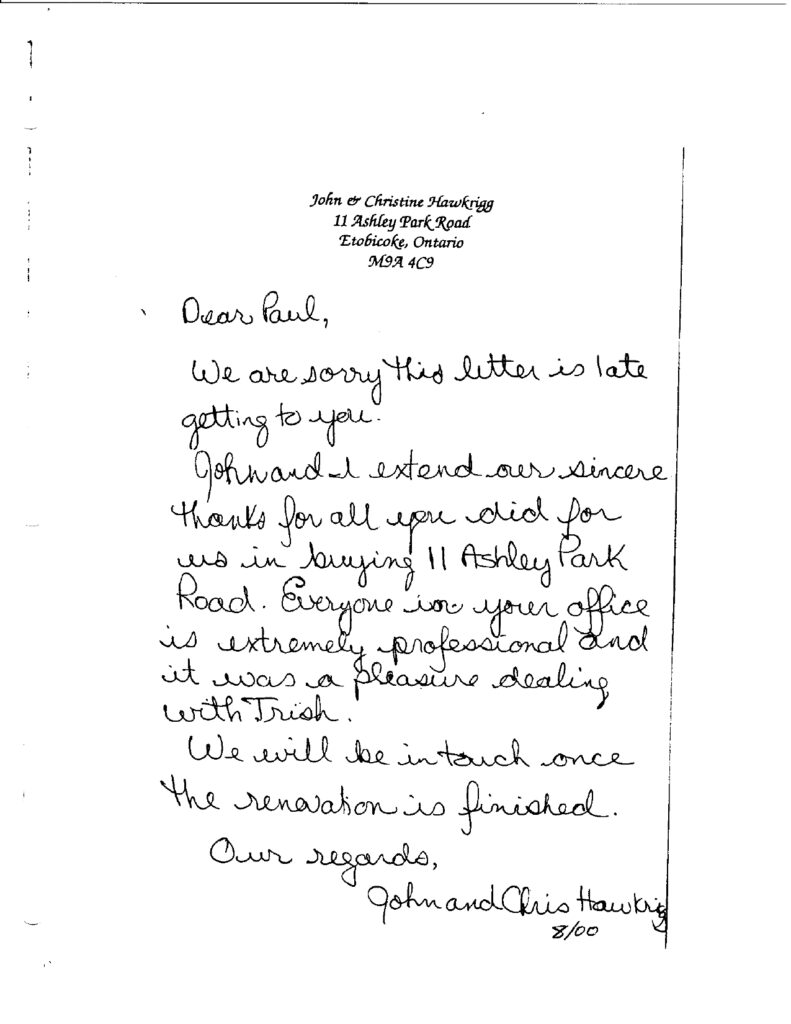 John & Christine Hawkrigg
11 Ashley Park Road
Etobicoke, Ontario
M9A 4C9
Dear Paul,
We are sorry this letter is late
getting to you.
John and I extend our sincere
thanks for all you did for
us in buying 11 Ashley Park
Road. Everyone in your office
is extremely professional and
it was a pleasure dealing
with Trish.
We will be in touch once
the renovation is finished.
Our regards,
John and Chris Hawkrigg
8/00